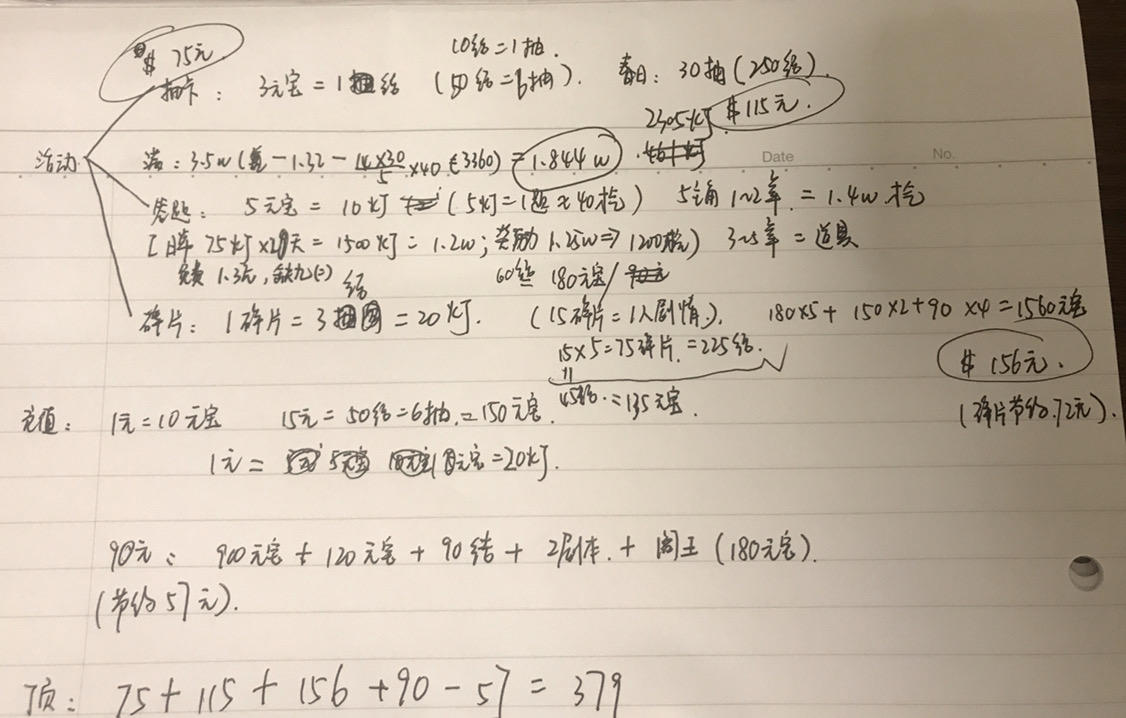 $ 75元
10结=1抽.
抽卡: 3元宝=1结 (50结=6抽). 春日: 30抽(250结)
2305灯 $115元.
活动
满: 3.5w( -1.32-14×30/5×40(3360)=1.844w).
Date No.
答题: 5元宝=10灯 (5灯=1题≈40抢) 5主角1~2章=1.4w抢
[日常75灯×20天=1500灯=1.2w; 奖励1.25w⇒1200抢) 3~5章=道具
免费1.3w,
60结 180元宝/
碎片: 1碎片=3结=20灯. (15碎片=1人剧情). 180×5+150×2+90×4=1560元宝
15×5=75碎片.=225结.
$ 156元.
45结.=135元宝.
(碎片节约72元).
充值: 1元=10元宝 15元=50结=6抽.=150元宝.
1元= 10元宝=20灯.
90元: 900元宝+120元宝+90结+2剧本.+阎王(180元宝).
(节约57元).
顶: 75+115+156+90-57=379